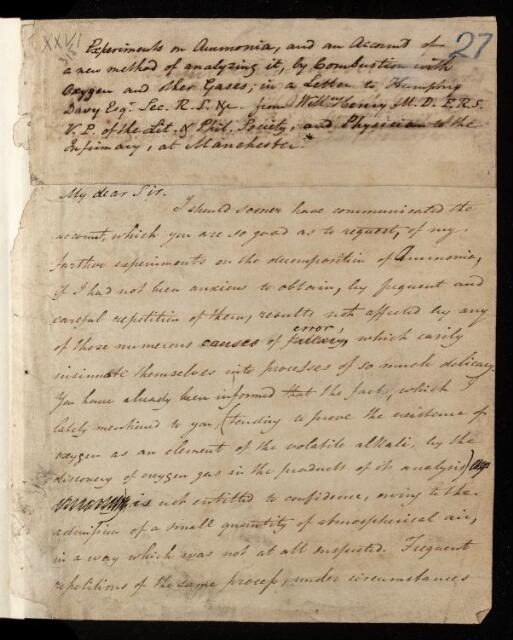 XXVI
27
Experiments on Ammonia, and an Account of
a new method of analyzing it, by Combustion with
Oxygen and other Gases; in a Letter to Humphry
Davy Esqr. Sec. R. S. &c. from Willm Henry M. D. F. R. S.
V. P. of the Lit. & Phil. Society, and Physician to the
Infirmary, at Manchester.*
My dear Sir.
I should sooner have communicated the
account, which you are so good as to request, of my
further experiments on the decomposition of Ammonia,
if I had not been anxious to obtain, by frequent and
careful repetition of them, results not affected by any
of those numerous causes of fallacy, error, which easily
insinuate themselves into processes of so much delicacy.
You have already been informed that the fact, which I
lately mentioned to you, (tending to prove the existence of
oxygen as an element of the volatile alkali, by the
discovery of oxygen gas in the products of its analysis)
is not entitled to confidence, owing to the
admission of a small quantity of atmospherical air,
in a way which was not at all suspected. Frequent
repetitions of the same process, under circumstances